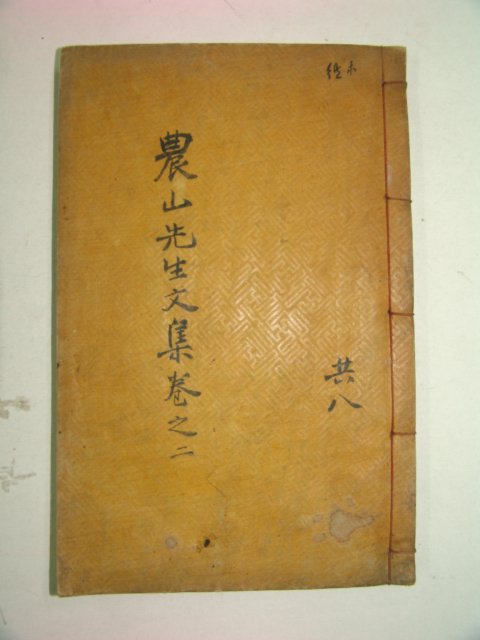 農山先生文集卷之二
共八